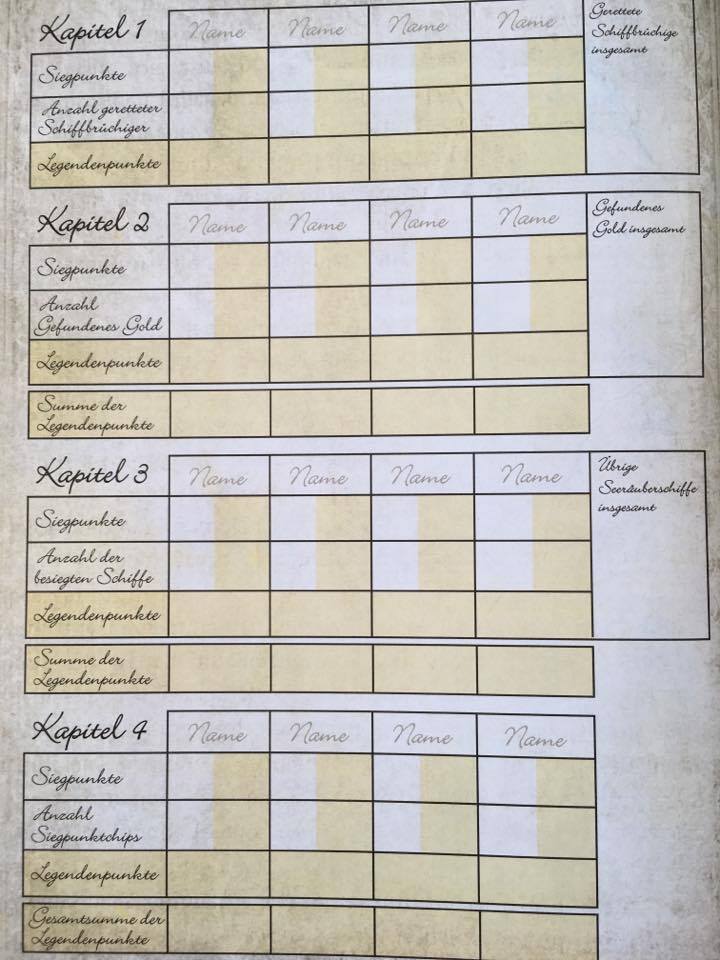 Kapitel 1
Name Name Name Name
Gerettete
Schiffbrüchige
insgesamt
Siegpunkte
Anzahl geretteter
Schiffbrüchiger
Legendenpunkte
Kapitel 2
Name Name Name Name
Gefundenes
Gold insgesamt
Siegpunkte
Anzahl
Gefundenes Gold
Legendenpunkte
Summe der
Legendenpunkte
Kapitel 3
Name Name Name Name
Übrige
Seeräuberschiffe
insgesamt
Siegpunkte
Anzahl der
besiegten Schiffe
Legendenpunkte
Summe der
Legendenpunkte
Kapitel 4
Name Name Name Name
Siegpunkte
Anzahl
Siegpunktchips
Legendenpunkte
Gesamtsumme der
Legendenpunkte